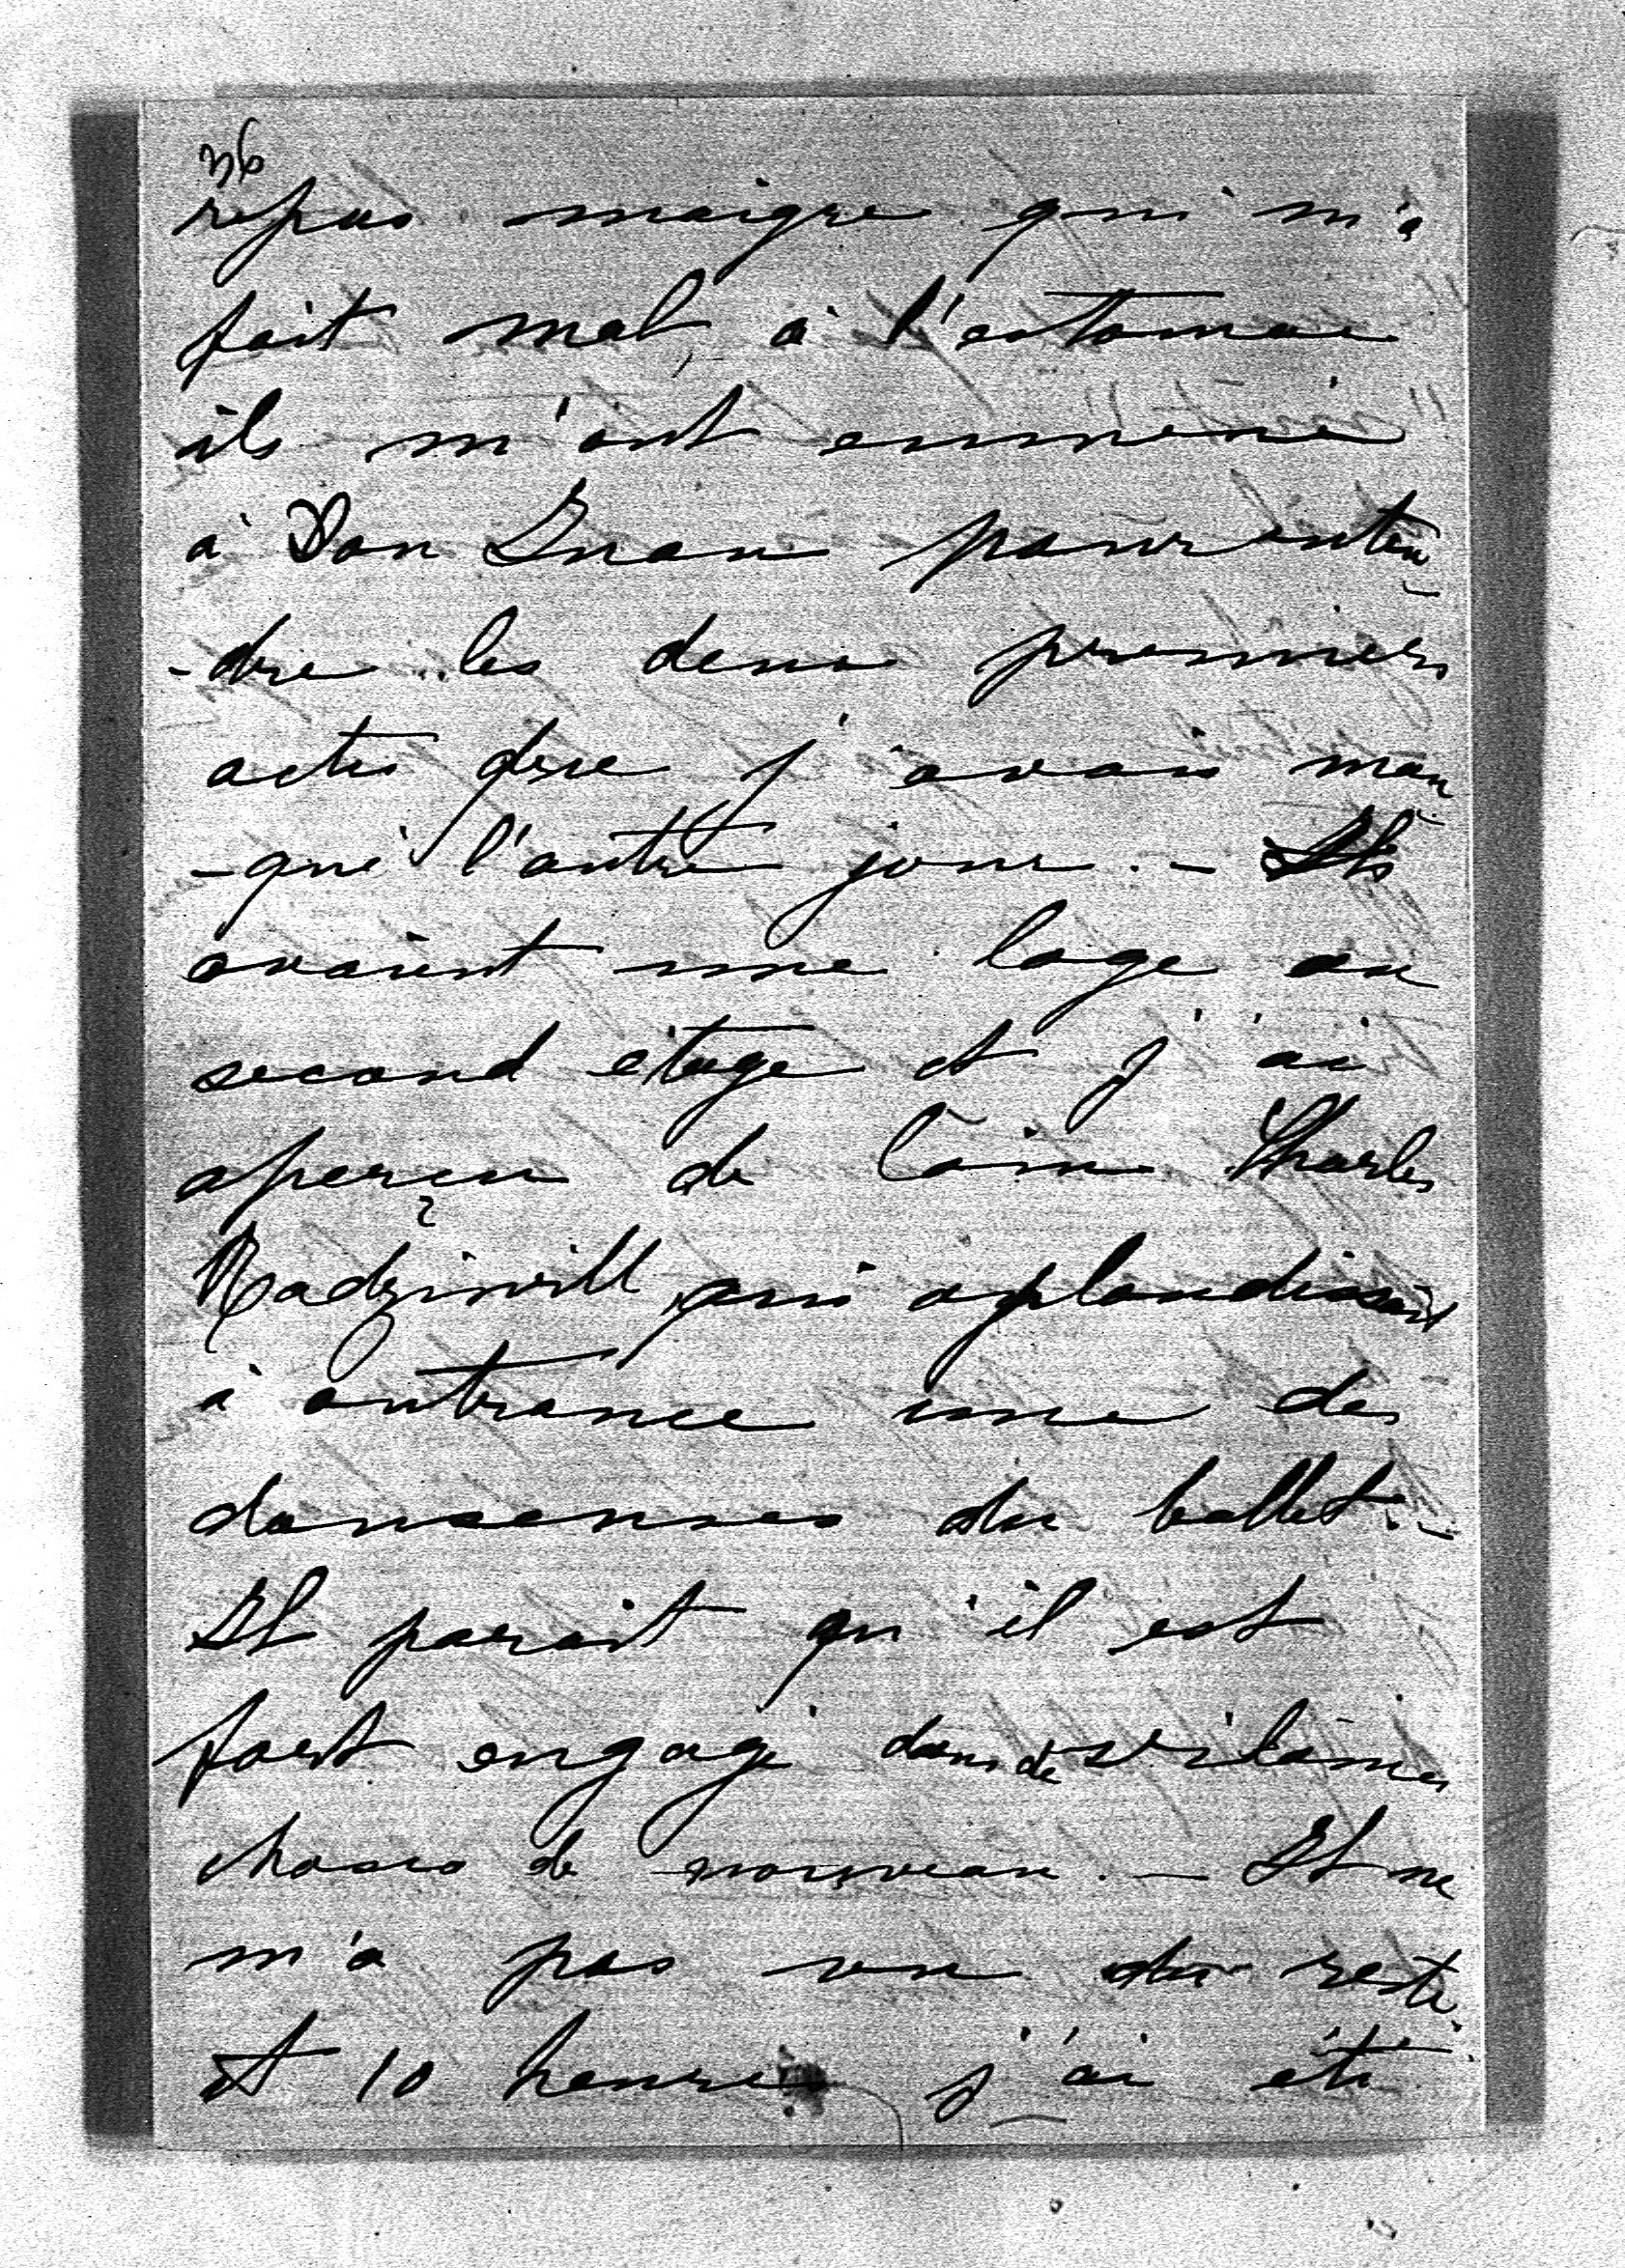 repas maigre qui m'a
fait mal à l'estomac
ils m'ont emmené
à Don Juan pour enten
-dre les deux premiers
actes que j'avais man
-qué l'autre jour. - Ils
avaient une loge au
second étage et j'ai
aperçu de loin Charles
Radziwill qui aplaudissait
à outrance une des
danseuses du ballet. -
Il parait qu'il est
fort engagé dans de vilaines
choses de nouveau. - Il ne
m'a pas vu du reste.
A 10 heures j'ai été